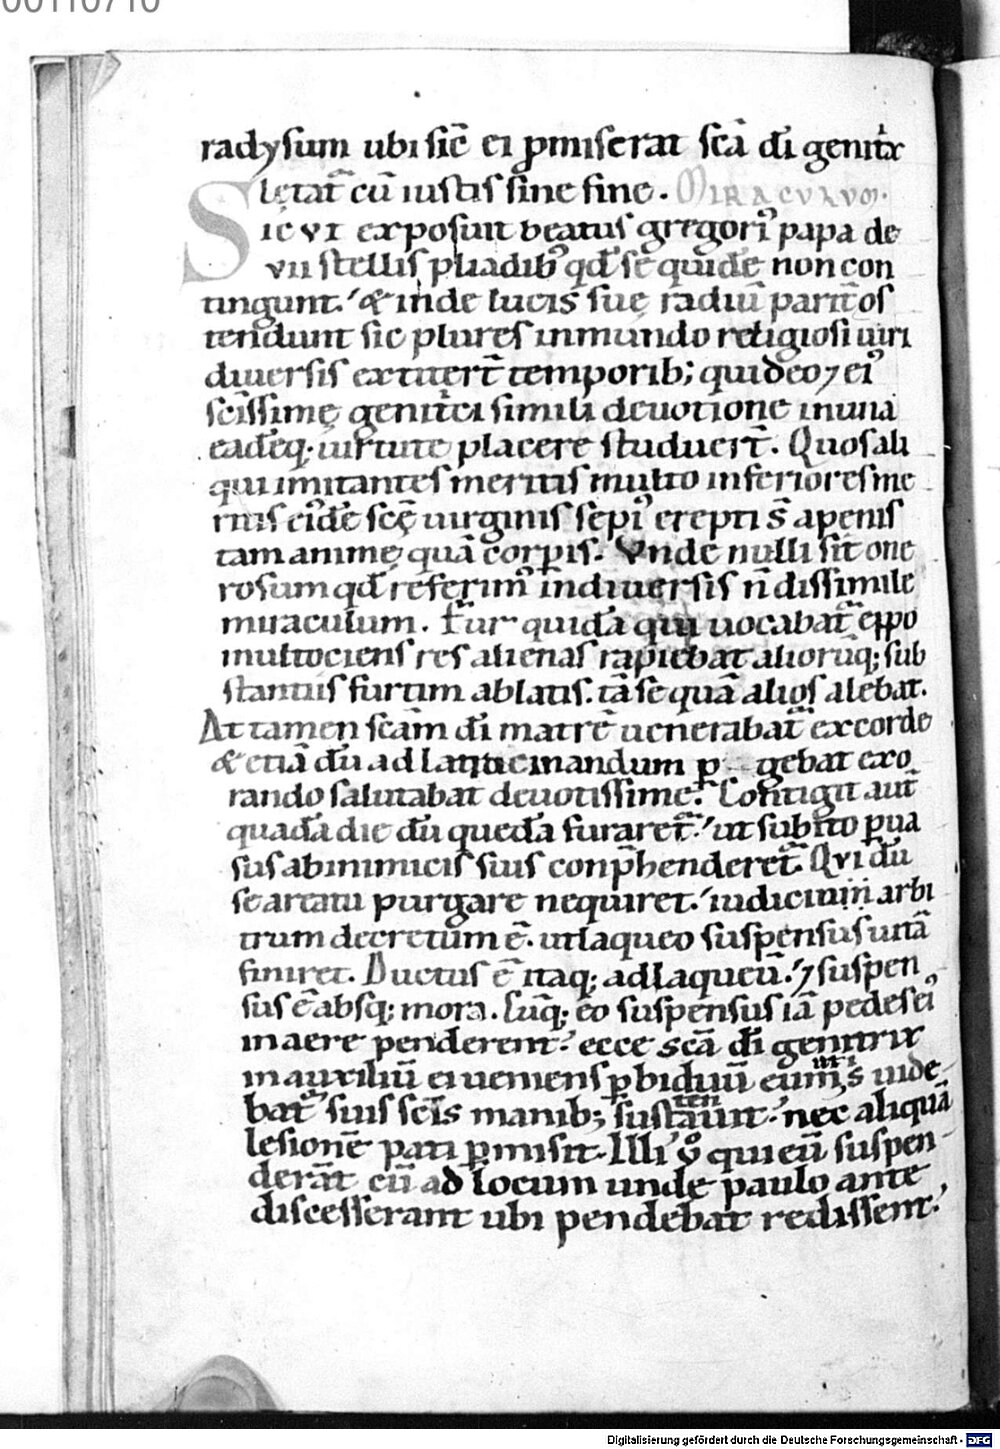 00110710
radysum ubi sic̄ ei ꝓmiserat sc̄a dī genitͥx
lętat᷑ cū iustis sine fine. MIRACULUM.
SICVT exposuit beatus gregori᷒ papa de
vii stellis pliadib᷒ qd̄ se quidē non con
tingunt.' & inde lucis suę radiū parit̄ os
tendunt sic plures in mundo religiosi uiri
diuersis extiter̄t temporib; qui deo ⁊ ei᷒
sc̄issimę genitͥci simili deuotione in una
eadēq; uirtute placere studuer̄t. Quos ali
qui imitantes meritis multo inferiores me
ritis ei᷒dē sc̄ę uirginis sępi᷒ erepti s̄ a penis
tam animę quā corꝑis. Vnde nulli sit one
rosum qd̄ referim᷒ in diuersis n̄ dissimile
miraculum. Fur quidā qui uocabat᷑ eppo
multociens res alienas rapiebat aliorūq; sub
stantiis furtim ablatis. tā se quā alios alebat.
At tamen sc̄am dī matrē uenerabat᷑ ex corde
& etiā dū ad latrocinandum ꝑgebat exo
rando salutabat deuotissime. Contigit aut̄
quadā die dū quedā furaret᷑.' ut subito ꝑua
sus ab inimicis suis conp̄henderet᷑. Qui dū
se artatū purgare nequiret.' iudicium arbi
trum decretum ē. ut laqueo suspensus uitā
finiret. Ductus ē itaq; ad laqueū.' ⁊ suspen
sus ē absq; mora. Cūq; eo suspensus iā pedes ei᷒
in aere penderent.' ecce sc̄a dī genitrix
in auxiliū ei ueniens ꝑ biduū eum ut s̄ uide
bat᷑ suis sc̄is manib; sustentauit.' nec aliquā
lesionē pati ꝑmisit. Illi ꝟo qui eū suspen
derāt cū ad locum unde paulo ante
discesserant ubi pendebat redissent.'
Digitalisierung gefördert durch die Deutsche Forschungsgemeinschaft - DFG